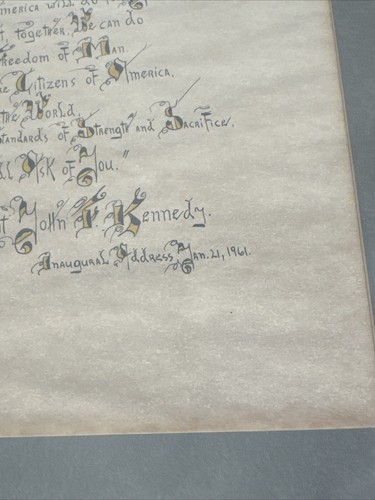 America will do for
t, together, We can do
Freedom of Man.
Citizens of America,
the World,
Standards of Strength and Sacrifice,
Ask of You."
John F. Kennedy.
Inaugural Address Jan. 21, 1961.